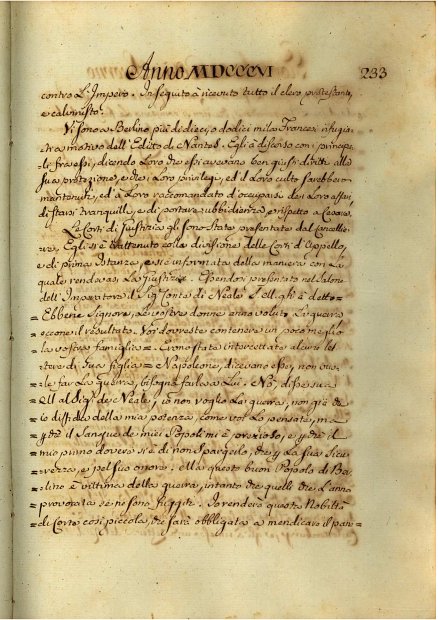 Anno MDCCCVI 233
contro L'Impero. In seguito à ricevuto tutto il clero protestante,
e calvinista.
Vi sono a Berlino più di dieci, o dodici mila Francesi rifugia
ti a motivo dell'Editto di Nantes. Egli à discorso con i principa
li fra essi, dicendo Loro che essi avevano ben giusti diritti alla
sua protezione, e che i Loro privilegj, ed il Loro culto sarebbero
mantenuti, ed à Loro raccomandato d'occuparsi de i Loro affari,
di stare tranquilli, e di portare ubbidienza, e rispetto a Cesare.
Le Corti di Giustizia gli sono state presentate dal Cancellie
re. Egli si è trattenuto colla divisione delle Corti d'Appello,
e di prima Istanza, e si è informato della maniera con La
quale rendevasi La giustizia. Essendosi presentato nel Salone
dell'Imperatore il Sig. Conte di Neale, Egli gli à detto =
= Ebbene Signore, Le vostre donne anno voluto La guerra
= eccone il resultato. Voi dovreste contenere un poco meglio
= la vostra famiglia = Erano state intercettate alcune let
= tere di sua figlia = Napoleone, dicevano esse, non vuo
= le far La guerra, bisogna farla a Lui. No, disse sua
= M. al Sig. de Neale, io non voglio La guerra, non già che
= io diffidi della mia potenza, come voi Lo pensate, ma
= perchè il Sangue de' miei Popoli mi è prezioso, e perchè il
= mio primo dovere si è di non spargerlo, che per La sua sicu
= rezza, e pel suo onore. Ma questo buon Popolo di Ber
= lino è vittima della guerra, intanto che quelli che L'anno
= provocata se ne sono fuggiti. Io renderò questa Nobiltà
= di Corte così piccola, che sarà obbligata a mendicare il pan =